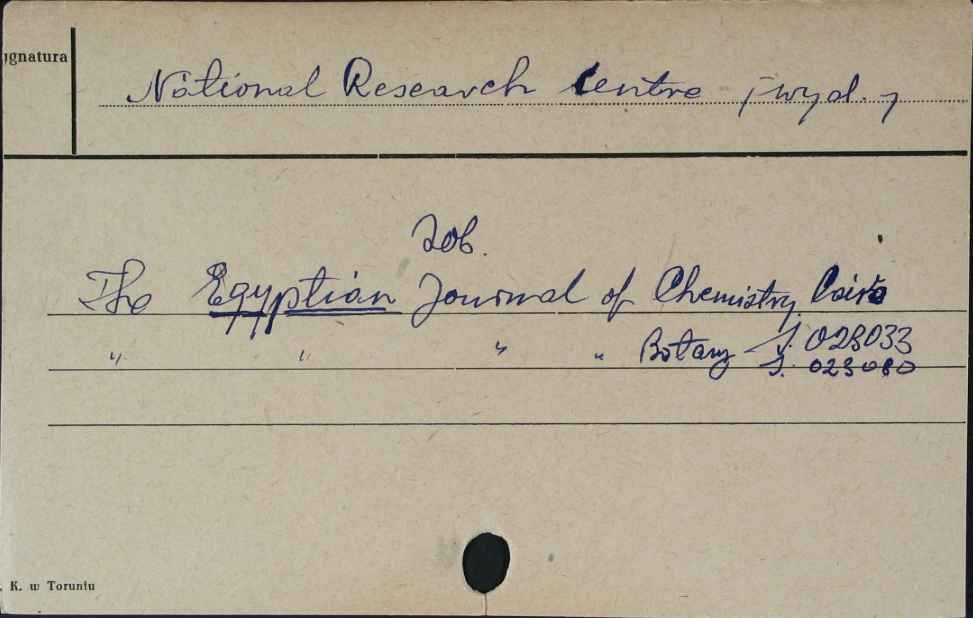 ygnatura
National Research Centre /wyd./
Zob.
The Egyptian Journal of Chemistry Cairo
" " " " Botany S. 023033
S. 023080
. K. w Toruniu